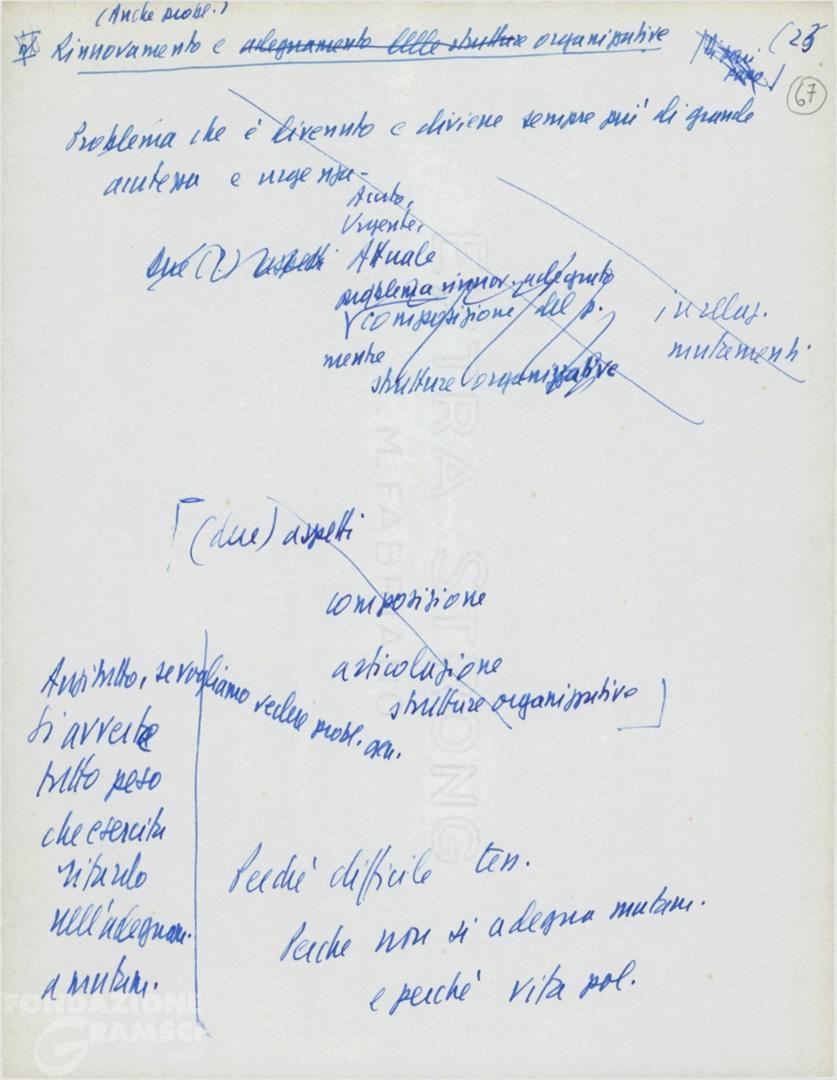 (Anche probl.)
Rinnovamento e adeguamento delle strutture organizzative
(25
67
Problema che è divenuto e diviene sempre più di grande
acutezza e urgenza -
Acuto,
Urgente,
Due (2) aspetti Attuale
problema rinnov. adeguato
composizione del p. in relaz.
mutamenti
mentre
strutture organizzative
[(due) aspetti
composizione
articolazione
strutture organizzative]
Anzitutto, se vogliamo vedere probl. gen.
si avverte
tutto peso
che esercita
ritardo
nell'adeguam.
a mutam.
Perché difficile ten.
Perche non si adegua mutam.
e perché vita pol.
EXTRA STRONG
FONDAZIONE
GRAMSCI